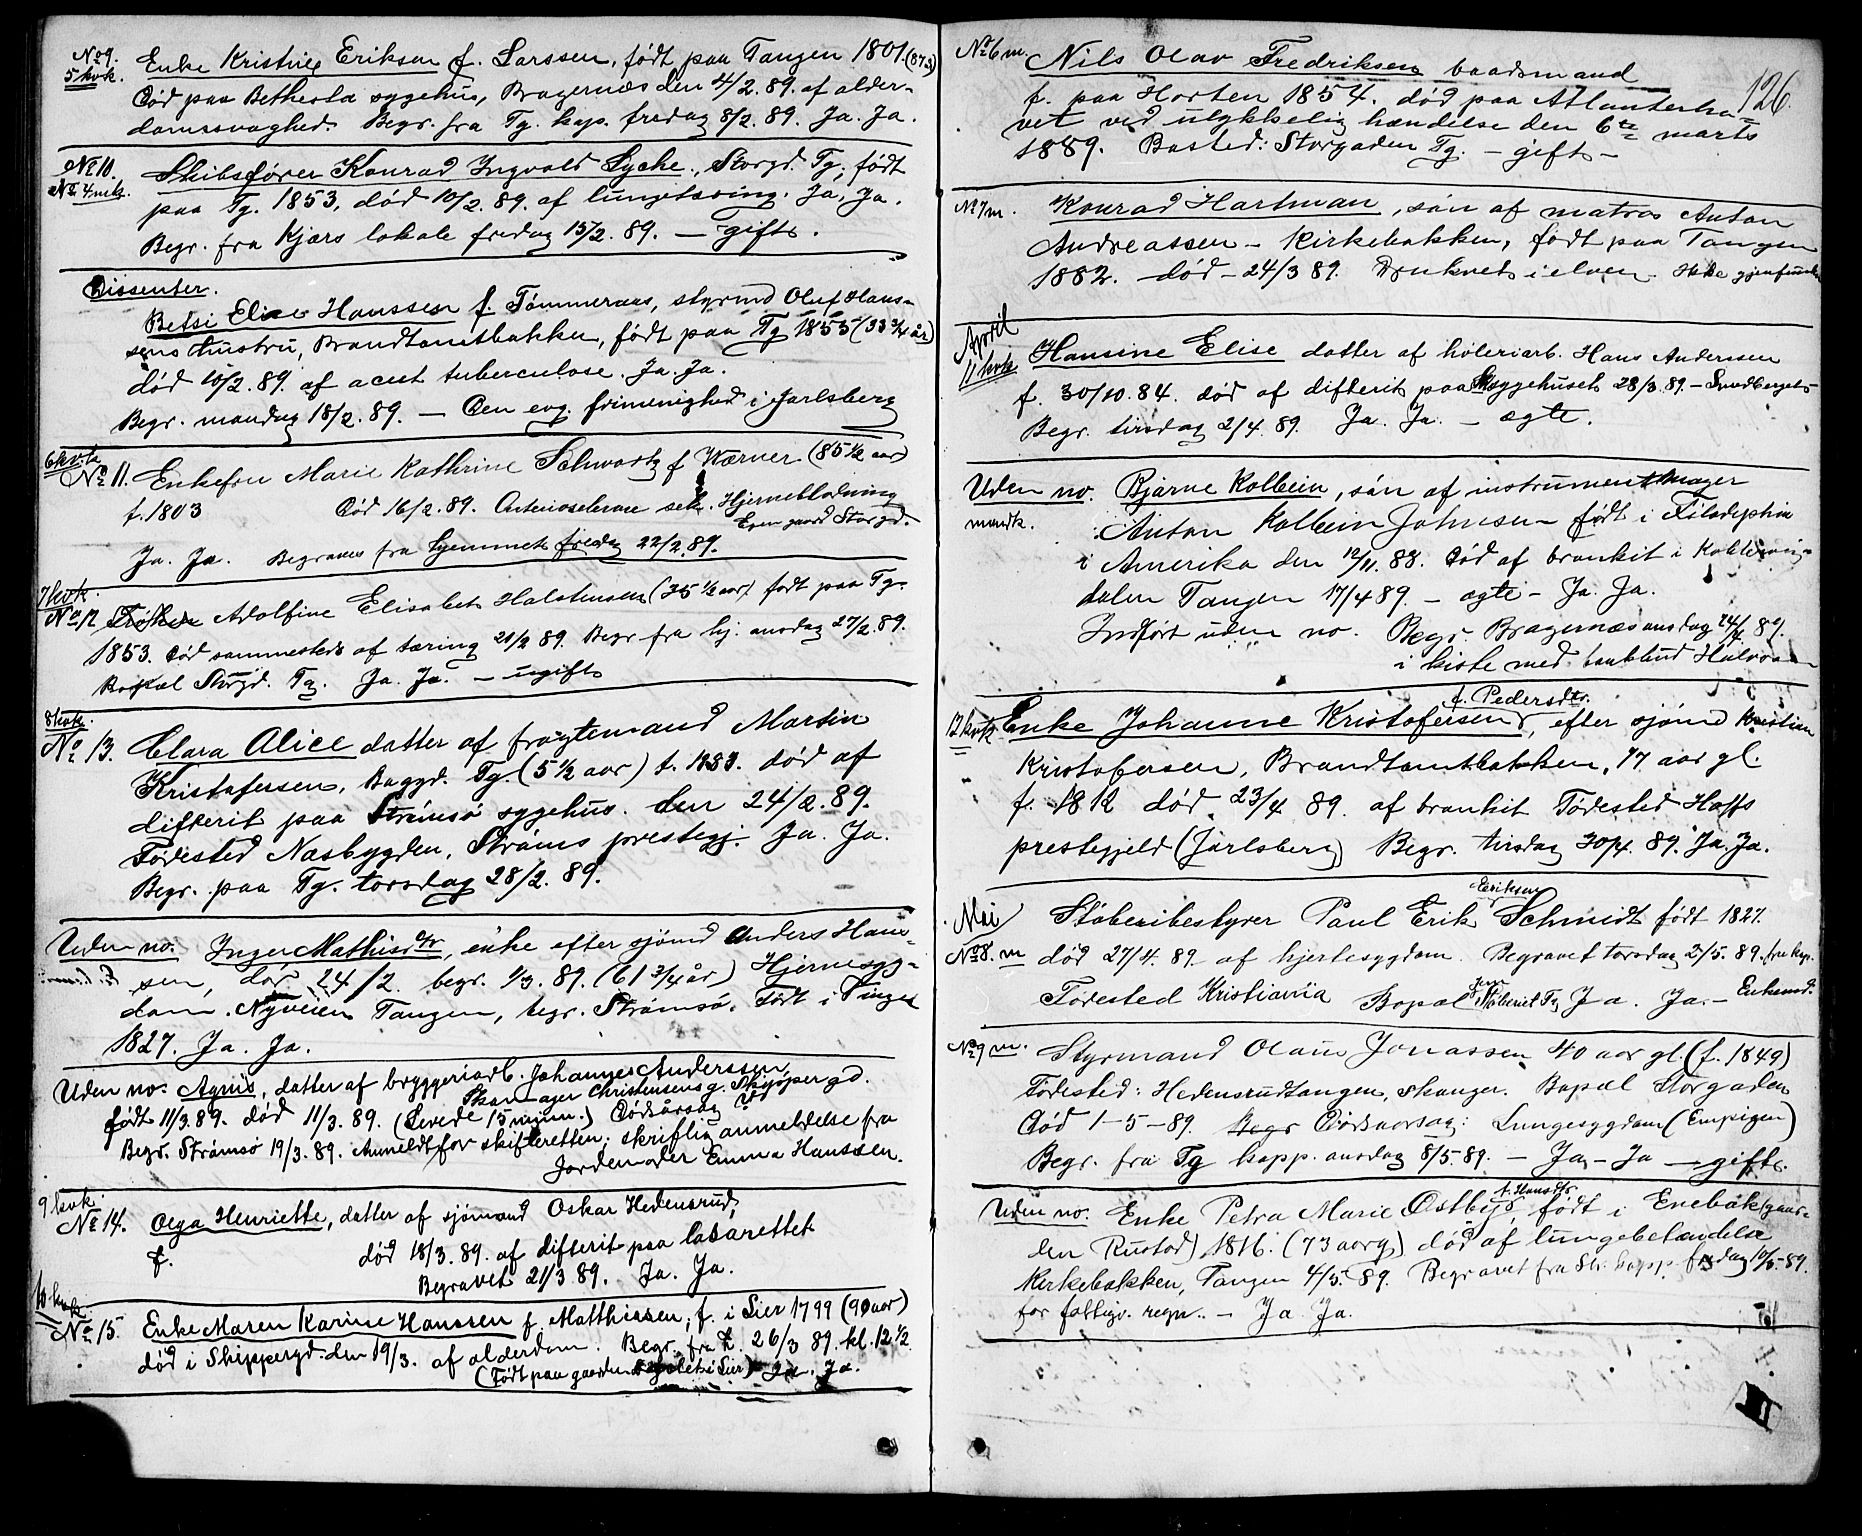 No 9. Enke Kristine Eriksen f. Larssen, født paa Tangen 1801. (87 3/4)
5 kvk. Død paa Bethesda sygehus, Bragernæs den 4/2. 89. af alder-
domssvaghed. Begr. fra Tg. kap. fredag 8/2. 89. Ja. Ja.
No 10. Skibsfører Konrad Ingvald Lyche., Storgd. Tg., født
No 4 mk. paa Tg. 1853, død 10/2. 89. af lungetæring. Ja, Ja.
Begr. fra Kjærs lokale fredag 15/2. 89. — gift.
Dissenter.
Betsi Elise Hanssen f. Tømmeraas, styrmd Oluf Hans-
sens hustru, Brandtomtbakken, født paa Tg 1855 (33 3/4 år)
død 10/2. 89. af acut tuberculose. Ja. Ja.
Begr. mandag 18/2. 89. — Den evg. frimenighed i Jarlsberg
6 kvk
No 11. Enkefru Marie Kathrine Schwartz f Wærner (85 1/2 aar)
f. 1803 Død 16/2. 89. Arterioselerose sek. Hjerneblødning
Egen gaard Storgd.
Ja. Ja. Begraves fra Hjemmet fredag 22/2. 89.
7 kvk.
No 12 Frøken Adolfine Elisabet Halstensen (35 1/2 aar) født paa Tg.
1853. Død sammesteds af tæring 21/2 89. Begr. fra hj. onsdag 27/2. 89.
Bopæl Storgd. Tg. Ja. Ja. — ugift
8 kvk.
No 13. Clara Alice datter af fragtemand Martin
Kristofersen, Baggd. Tg. (5 1/2 aar) f. 1883. død af
difterit paa Strømsø sygehus. den 24/2. 89.
Fødested Næsbygden, Strøms prestegj. Ja. Ja.
Begr. paa Tg. torsdag 28/2. 89.
Uden no. Inger Mathisdtr, enke efter sjømd Anders Han-
sen, død 24/2. begr. 1/3. 89. (61 3/4 år) Hjernesyg-
dom. Nyveien Tangen, begr. Strømsø. Født i Vinger
1827. Ja. Ja.
Uden no. Agnis, datter af bryggeriarb. Johannes Anderssen,
Skomager Christensens g. Skippergd.
født 11/3. 89. død 11/3. 89. (Levede 15 minn.) Dødsårsag ?
Begr. Strømsø 19/3. 89. Anmeldt for skifteretten; skriflig anmeldelse fra
Jordemoder Emma Hanssen.
9 kvk.
No 14. Olga Henriette, datter af sjømand Oskar Hedensrud,
f. død 18/3. 89. af difterit paa lasarettet
Begravet 21/3 89. Ja. Ja.
10 kvk.
No 15. Enke Maren Karine Hanssen f. Matthissen, f. i Lier 1799 (90 aar)
død i Skippergd. den 19/3. af alderdom. Begr. fra h. 26/3 89. kl. 12 1/2
(Født paa gaarden i Lier) Ja. Ja.
126.
No 6 m. Nils Olav Fredriksen baadsmand
f. paa Horten 1854. død paa Atlanterha-
vet ved ulykkelig hændelse den 6te marts
1889. Bosted: Storgaden Tg. — gift —
No 7 m. Konrad Hartman, søn af matros Anton
Andreassen — Kirkebakken, født paa Tangen
1882. død — 24/3 89. Druknet i elven. Ikke gjenfunden
April
11 kvk Hansine Elise datter af høleriarb. Hans Anderssen
f. 30/10. 84. død af difterit paa Sygehuset 28/3. 89. —
Begr. tirsdag 2/4. 89. Ja. Ja. — ægte.
Uden no. Bjarne Kolbein, søn af instrumentmager
mandk. Anton Kolbein Johnsen født i Filadephia
i Amerika den 12/11. 88. Død af bronkit i
dalen Tangen 17/4 89. — ægte — Ja. Ja.
Indført uden no. Begr. Bragernæs onsdag 24/4 89.
i kiste med
f. Pedersdtr.
12 kvk Enke Johanne Kristofersen, efter sjømd Kristian
Kristofersen, Brandtomtbakken, 77 aar gl.
f. 1812 død 23/4 89. af bronkit Fødested Hoffs
prestegjeld (Jarlsberg) Begr. tirsdag 30/4. 89. Ja. Ja.
Mai Støberibestyrer Paul Erik Eeriksen Schmidt født 1827.
No 8. m død 27/4. 89 af hjertesygdom. Begravet torsdag 2/5. 89. fra kap.
Fødested Kristiania Bopæl Støberiet Tg. Ja. Ja. — Enkemd.
No 9 m. Styrmand Olaus Jonassen 40 aar gl. (f. 1849)
Fødested: Hedensrudtangen, Skoger. Bopæl Storgaden
Død 1—5—89. Begr Dødsaarsag: Lungesygdom (Empigen)
Begr. fra Tg kapp. onsdag 8/5. 89. — Ja — Ja — gift.
f. Hansdtr.
Uden no. Enke Petra Marie Østbye, født i Enebak (gaar-
den Rustad) 1816. (73 aar g.) død af lungebetændelse
Kirkebakken, Tangen 4/5. 89. Begravet fra Str. kapp. fredag 10/5 — 89.
for fattigv. regn.. — Ja Ja.